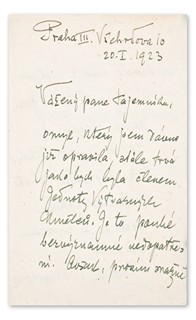 Praha III. Všehrdova 10
20.I.1923
Vážený pane tajemníku,
omyl, který jsem dávno
již opravila, stále trvá
jako bych byla členem
Jednoty Výtvarných
Umělců. Je to pouhé
bezvýznamné nedopatře-
ní. Avšak, prosím snažně